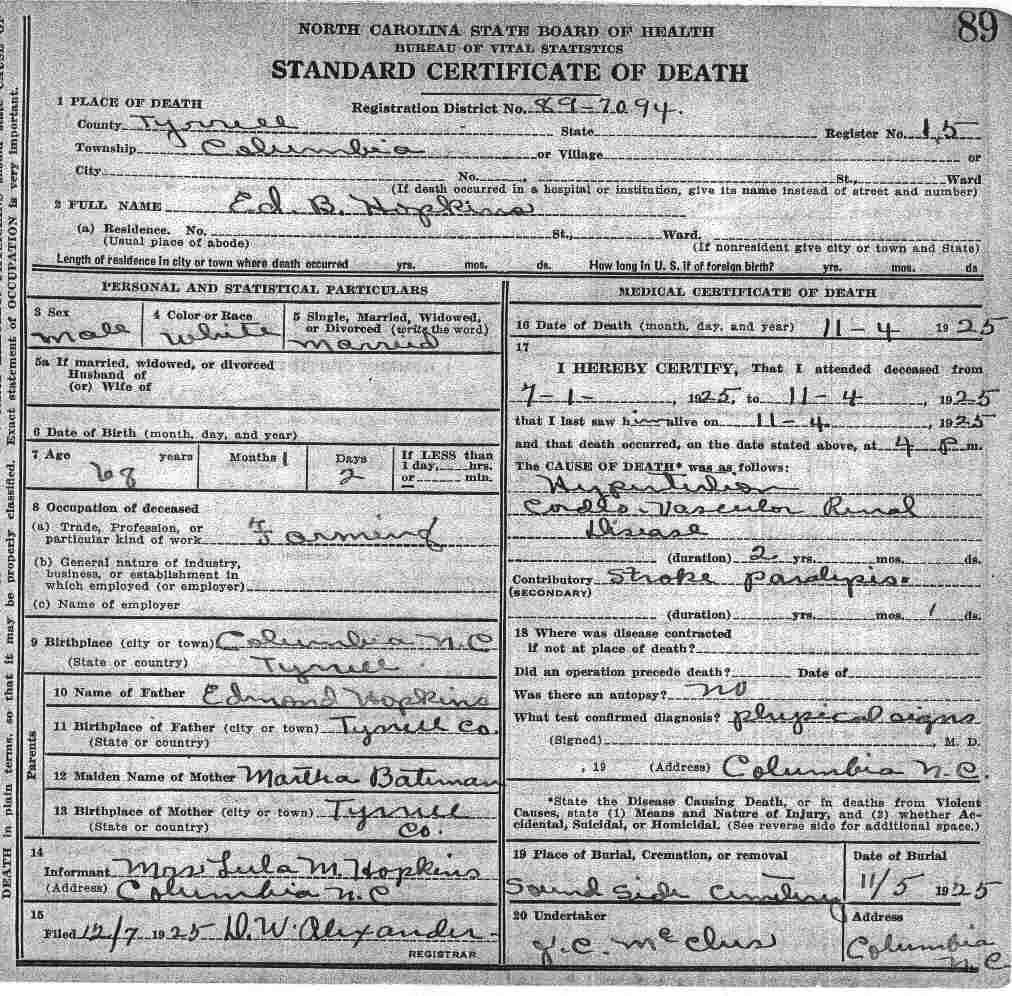 89
NORTH CAROLINA STATE BOARD OF HEALTH
BUREAU OF VITAL STATISTICS
STANDARD CERTIFICATE OF DEATH
1 PLACE OF DEATH Registration District No. 89-7094.
County Tyrrell State Register No. 15
Township Columbia or Village or
City No. St., Ward
(If death occurred in a hospital or institution, give its name instead of street and number)
2 FULL NAME Ed. B. Hopkins
(a) Residence. No. St., Ward.
(Usual place of abode) (If nonresident give city or town and State)
Length of residence in city or town where death occurred yrs. mos. ds. How long in U. S. if of foreign birth? yrs. mos. ds
PERSONAL AND STATISTICAL PARTICULARS
3 Sex
Male
4 Color or Race
White
5 Single, Married, Widowed,
or Divorced (write the word)
Married
5a If married, widowed, or divorced
Husband of
(or) Wife of
6 Date of Birth (month, day, and year)
7 Age 68 years
Months 1
Days
2
If LESS than
1 day, hrs.
or min.
8 Occupation of deceased
(a) Trade, Profession, or
particular kind of work Farming
(b) General nature of industry,
business, or establishment in
which employed (or employer)
(c) Name of employer
9 Birthplace (city or town) Columbia N.C
(State or country) Tyrrell
Parents
10 Name of Father Edmond Hopkins
11 Birthplace of Father (city or town) Tyrrell Co.
(State or country)
12 Maiden Name of Mother Martha Bateman
13 Birthplace of Mother (city or town) Tyrrell
(State or country) Co.
14
Informant Mrs Lula M. Hopkins
(Address) Columbia N.C
15
Filed 12/7 1925 D.W. Alexander
REGISTRAR
MEDICAL CERTIFICATE OF DEATH
16 Date of Death (month, day, and year) 11-4 1925
17
I HEREBY CERTIFY, That I attended deceased from
7-1-, 1925, to 11-4, 1925
that I last saw him alive on 11-4, 1925
and that death occurred, on the date stated above, at 4 P m.
The CAUSE OF DEATH* was as follows:
Hypertention
Cordio-Vascular Renal
Disease
(duration) 2 yrs. mos. ds.
Contributory Stroke paralysis.
(SECONDARY)
(duration) yrs. mos. 1 ds.
18 Where was disease contracted
if not at place of death?
Did an operation precede death? Date of
Was there an autopsy? no
What test confirmed diagnosis? physical signs
(Signed) , M. D.
, 19 (Address) Columbia N.C.
*State the Disease Causing Death, or in deaths from Violent
Causes, state (1) Means and Nature of Injury, and (2) whether Ac-
cidental, Suicidal, or Homicidal. (See reverse side for additional space.)
19 Place of Burial, Cremation, or removal
Sound Side Cemetery
Date of Burial
11/5 1925
20 Undertaker
J.C. McClus
Address
Columbia
N.C.
DEATH in plain terms, so that it may be properly classified. Exact statement of OCCUPATION is very important.